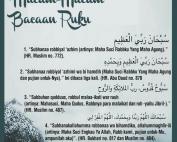 Macam-Macam
Bacaan Ruku
سُبْحَانَ رَبِّيَ الْعَظِيمِ
1. "Subhanaa robbiyal 'azhim (artinya: Maha Suci Rabbku Yang Maha Agung)."
(HR. Muslim no. 772).
سُبْحَانَ رَبِّيَ الْعَظِيمِ
2. "Subhana robbiyal 'azhimi wa bi hamdih (Maha Suci Rabbku Yang Maha Agung
dan pujian untuk-Nya)." Ini dibaca tiga kali. (HR. Abu Daud no. 870)
سُبُّوحٌ قُدُّوسٌ رَبُّ الْمَلَائِكَةِ وَالرُّوحِ
3. "Subbuhun quddus, robbul malaa-ikati war ruuh
(artinya: Mahasuci, Maha Qudus, Rabbnya para malaikat dan ruh -yaitu Jibril-)."
(HR. Muslim no. 487).
4. "Subhanakallahumma robbanaa wa bihamdika, allahummaghfir-lii
(artinya: Maha Suci Engkau Ya Allah, Rabb kami, pujian untuk-Mu,
ampunilah aku)." (HR. Bukhari no. 817 dan Muslim no. 484).